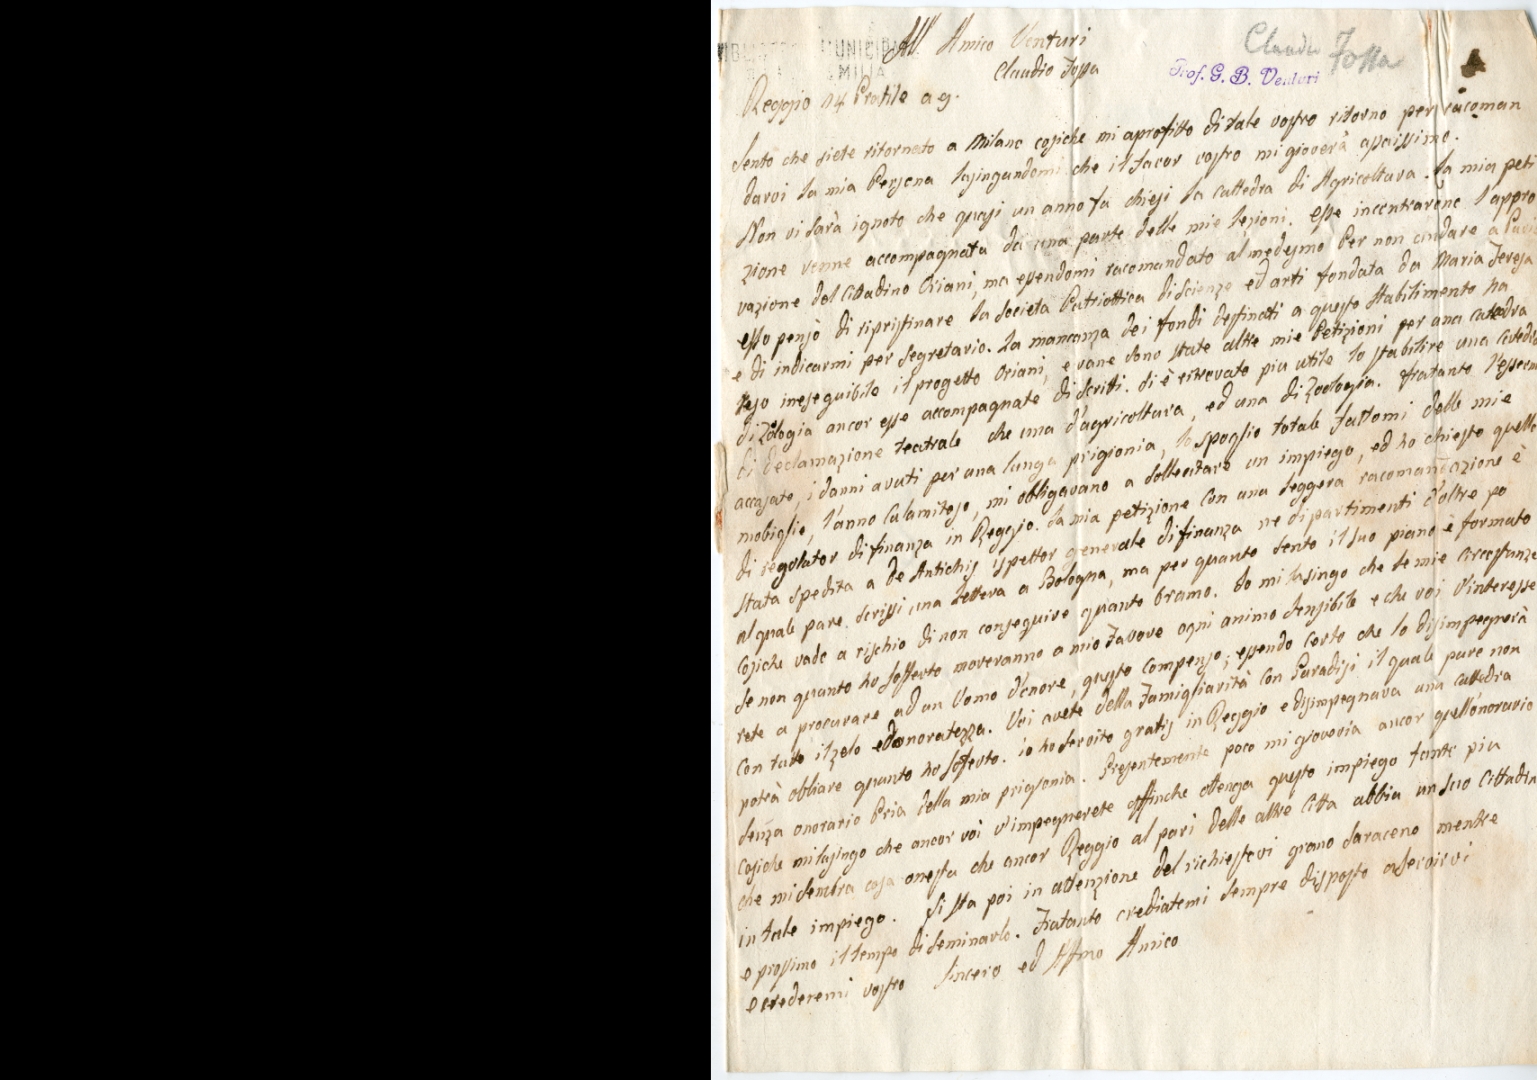 All' Amico Venturi
Claudio Fossa
Claudio Fossa
Prof. G. B. Venturi
Reggio 14 Pratile a 9.
Sento che siete ritornato a Milano cosiche mi aprofitto di tale vostro ritorno per racoman
darvi la mia Persona lusingandomi che il favor vostro mi gioverà assaissimo.
Non vi sarà ignoto che quasi un anno fa chiesi la cattedra di Agricoltura. La mia peti
zione venne accompagnata da una parte delle mie lezioni. Esse incontrarono l'appro
vazione del Cittadino Oriani, ma essendomi racomandato al medesmo per non andare a Pavia
esso pensò di ripristinare la Società Patriottica di Scienze ed arti fondata da Maria Teresa
e di indicarmi per Segretario. La mancanza dei fondi destinati a questo stabilimento ha
reso ineseguibile il progetto Oriani, e vane sono state altre mie Petizioni per una catedra
di Zologia ancor esse accompagnate di scritti. Si è ritrovato piu utile lo stabilire una
di declamazione teatrale che una d'agricoltura, ed una di Zoologia. Fratanto
i danni avuti per una lunga prigionia, lo spoglio totale fattomi delle mie
mobiglie, l'anno Calamitoso, mi obligavano a sollecitare un impiego, ed ho chiesto quello
di regolator di finanza in Reggio. La mia petizione con una leggera racomandazione è
stata spedita a De Antichis ispettor generale di finanza ne dipartimenti d'oltre po
al quale pare scrissi una lettera a Bologna, ma per quanto sento il suo piano è formato
Cosiche vado a rischio di non conseguire quanto bramo. Io mi lusingo che le mie circostanze
se non quanto ho sofferto moveranno a mio favore ogni animo sensibile e che voi v'interesse
rete a procurare ad un Uomo d'onore, questo compenso; essendo certo che lo disimpegnerà
con tutto il zelo ed onoratezza. Voi avete della Famigliarità con Paradisi il quale pure non
potrà obliare quanto ho sofferto. io ho servito gratis in Reggio e disimpegnava una cattedra
senza onorario Pria della mia prigionia. Presentemente poco mi gioveria ancor quell'onorario
Cosiche mi lusingo che ancor voi v'impegnerete affinche ottenga questo impiego tanto piu
che mi sembra cosa onesta che ancor Reggio al pari delle altre Citta abbia un suo Cittadin
in tale impiego. Si sta poi in attenzione del richiestovi grano saraceno mentre
e prossimo il tempo di seminarlo. Fratanto crediatemi sempre disposto a servirvi
e crederemi vostro Sincero ed Affmo Amico